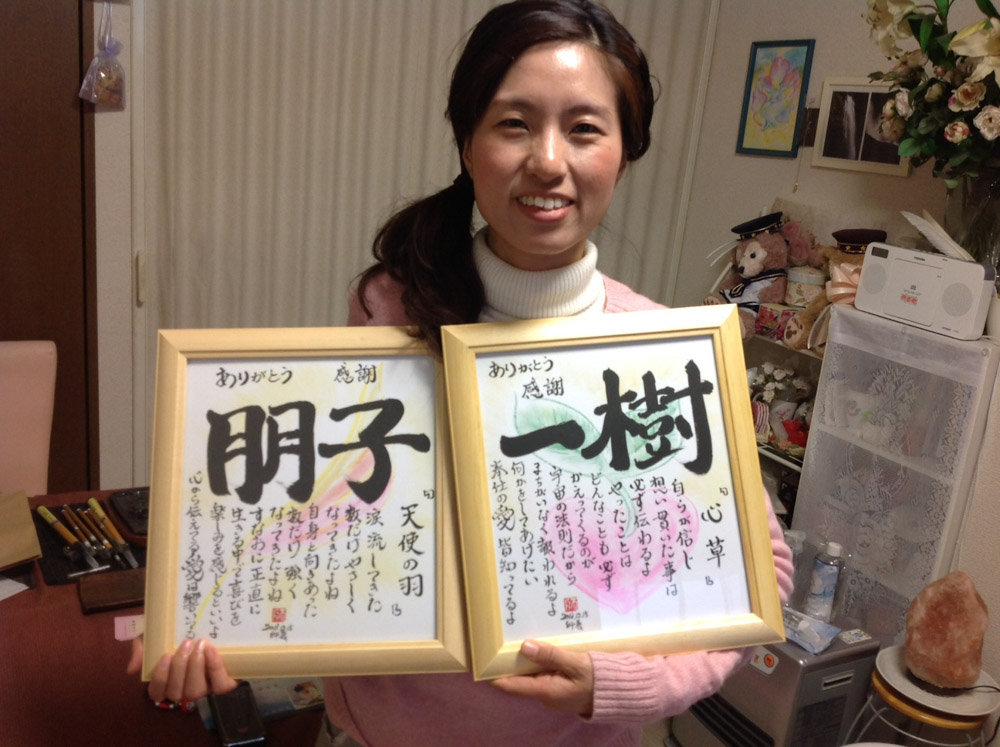 ありがとう 感謝
朋子
「天使の羽」
涙流してきた
数だけやさしく
なってきたよね
自身と向きあった
数だけ強く
なってきたよね
すなおに正直に
生きる中で喜びを
楽しみを感じるといいよ
心から伝えてる愛は響いてる
ありがとう
感謝
一樹
「心草」
自らが信じ
想い貫いた事は
必ず伝わるよ
やったことは
どんなことも必ず
かえってくるのが
宇宙の法則だから
まちがいなく報われるよ
何かをしてあげたい
奉仕の愛 皆知ってるよ